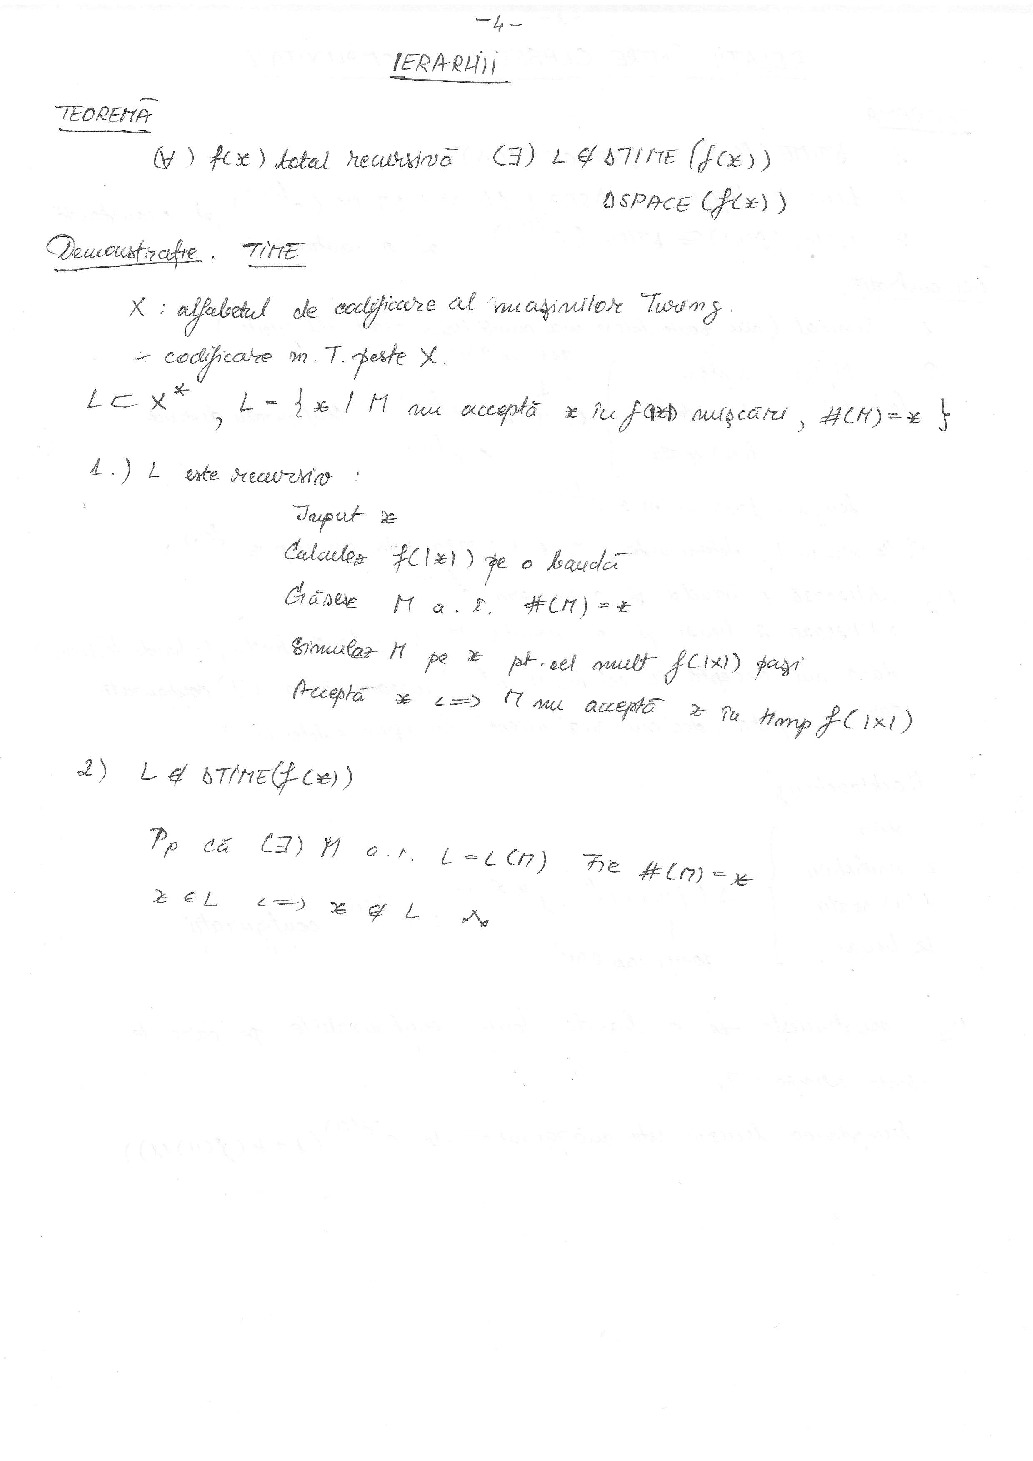 -4-
IERARHII
TEOREMĂ
(∀) f(x) total recursivă (∃) L ∉ DTIME (f(x))
DSPACE (f(x))
Demonstrație. TIME
X : alfabetul de codificare al mașinilor Turing.
- codificare m. T. peste X.
L ⊂ X*, L = { x / M nu acceptă x în f(|x|) mișcări, #(M) = x }
1.) L este recursiv :
Input x
Calculez f(|x|) pe o bandă
Găsesc M a. î. #(M) = x
Simulez M pe x pt. cel mult f(|x|) pași
Acceptă x <=> M nu acceptă x în timp f(|x|)
2) L ∉ DTIME(f(x))
Pp că (∃) M a.î. L = L(M) Fie #(M) = x
x ∈ L <=> x ∉ L